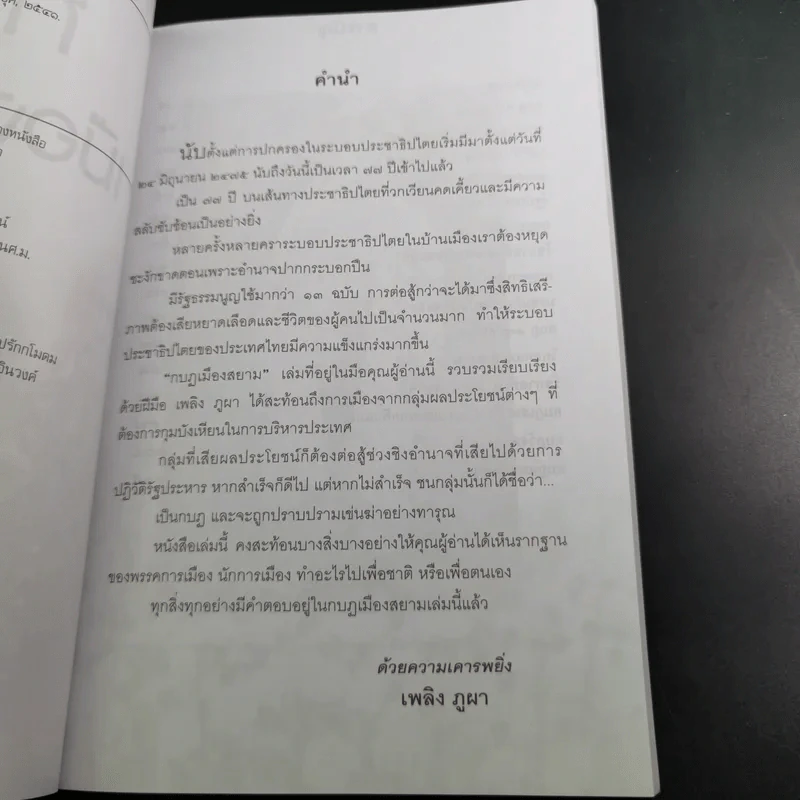 คำนำ
นับตั้งแต่การปกครองในระบอบประชาธิปไตยเริ่มมีมาตั้งแต่วันที่
๒๔ มิถุนายน ๒๔๗๕ นับถึงวันนี้เป็นเวลา ๗๗ ปีเข้าไปแล้ว
เป็น ๗๗ ปี บนเส้นทางประชาธิปไตยที่วกเวียนคดเคี้ยวและมีความ
สลับซับซ้อนเป็นอย่างยิ่ง
หลายครั้งหลายคราระบอบประชาธิปไตยในบ้านเมืองเราต้องหยุด
ชะงักขาดตอนเพราะอำนาจปากกระบอกปืน
มีรัฐธรรมนูญใช้มากว่า ๑๓ ฉบับ การต่อสู้กว่าจะได้มาซึ่งสิทธิเสรี-
ภาพต้องเสียหยาดเลือดและชีวิตของผู้คนไปเป็นจำนวนมาก ทำให้ระบอบ
ประชาธิปไตยของประเทศไทยมีความแข็งแกร่งมากขึ้น
"กบฏเมืองสยาม" เล่มที่อยู่ในมือคุณผู้อ่านนี้ รวบรวมเรียบเรียง
ด้วยฝีมือ เพลิง ภูผา ได้สะท้อนถึงการเมืองจากกลุ่มผลประโยชน์ต่างๆ ที่
ต้องการกุมบังเหียนในการบริหารประเทศ
กลุ่มที่เสียผลประโยชน์ก็ต้องต่อสู้ช่วงชิงอำนาจที่เสียไปด้วยการ
ปฏิวัติรัฐประหาร หากสำเร็จก็ดีไป แต่หากไม่สำเร็จ ชนกลุ่มนั้นก็ได้ชื่อว่า...
เป็นกบฏ และจะถูกปราบปรามเข่นฆ่าอย่างทารุณ
หนังสือเล่มนี้ คงสะท้อนบางสิ่งบางอย่างให้คุณผู้อ่านได้เห็นรากฐาน
ของพรรคการเมือง นักการเมือง ทำอะไรไปเพื่อชาติ หรือเพื่อตนเอง
ทุกสิ่งทุกอย่างมีคำตอบอยู่ในกบฏเมืองสยามเล่มนี้แล้ว
ด้วยความเคารพยิ่ง
เพลิง ภูผา